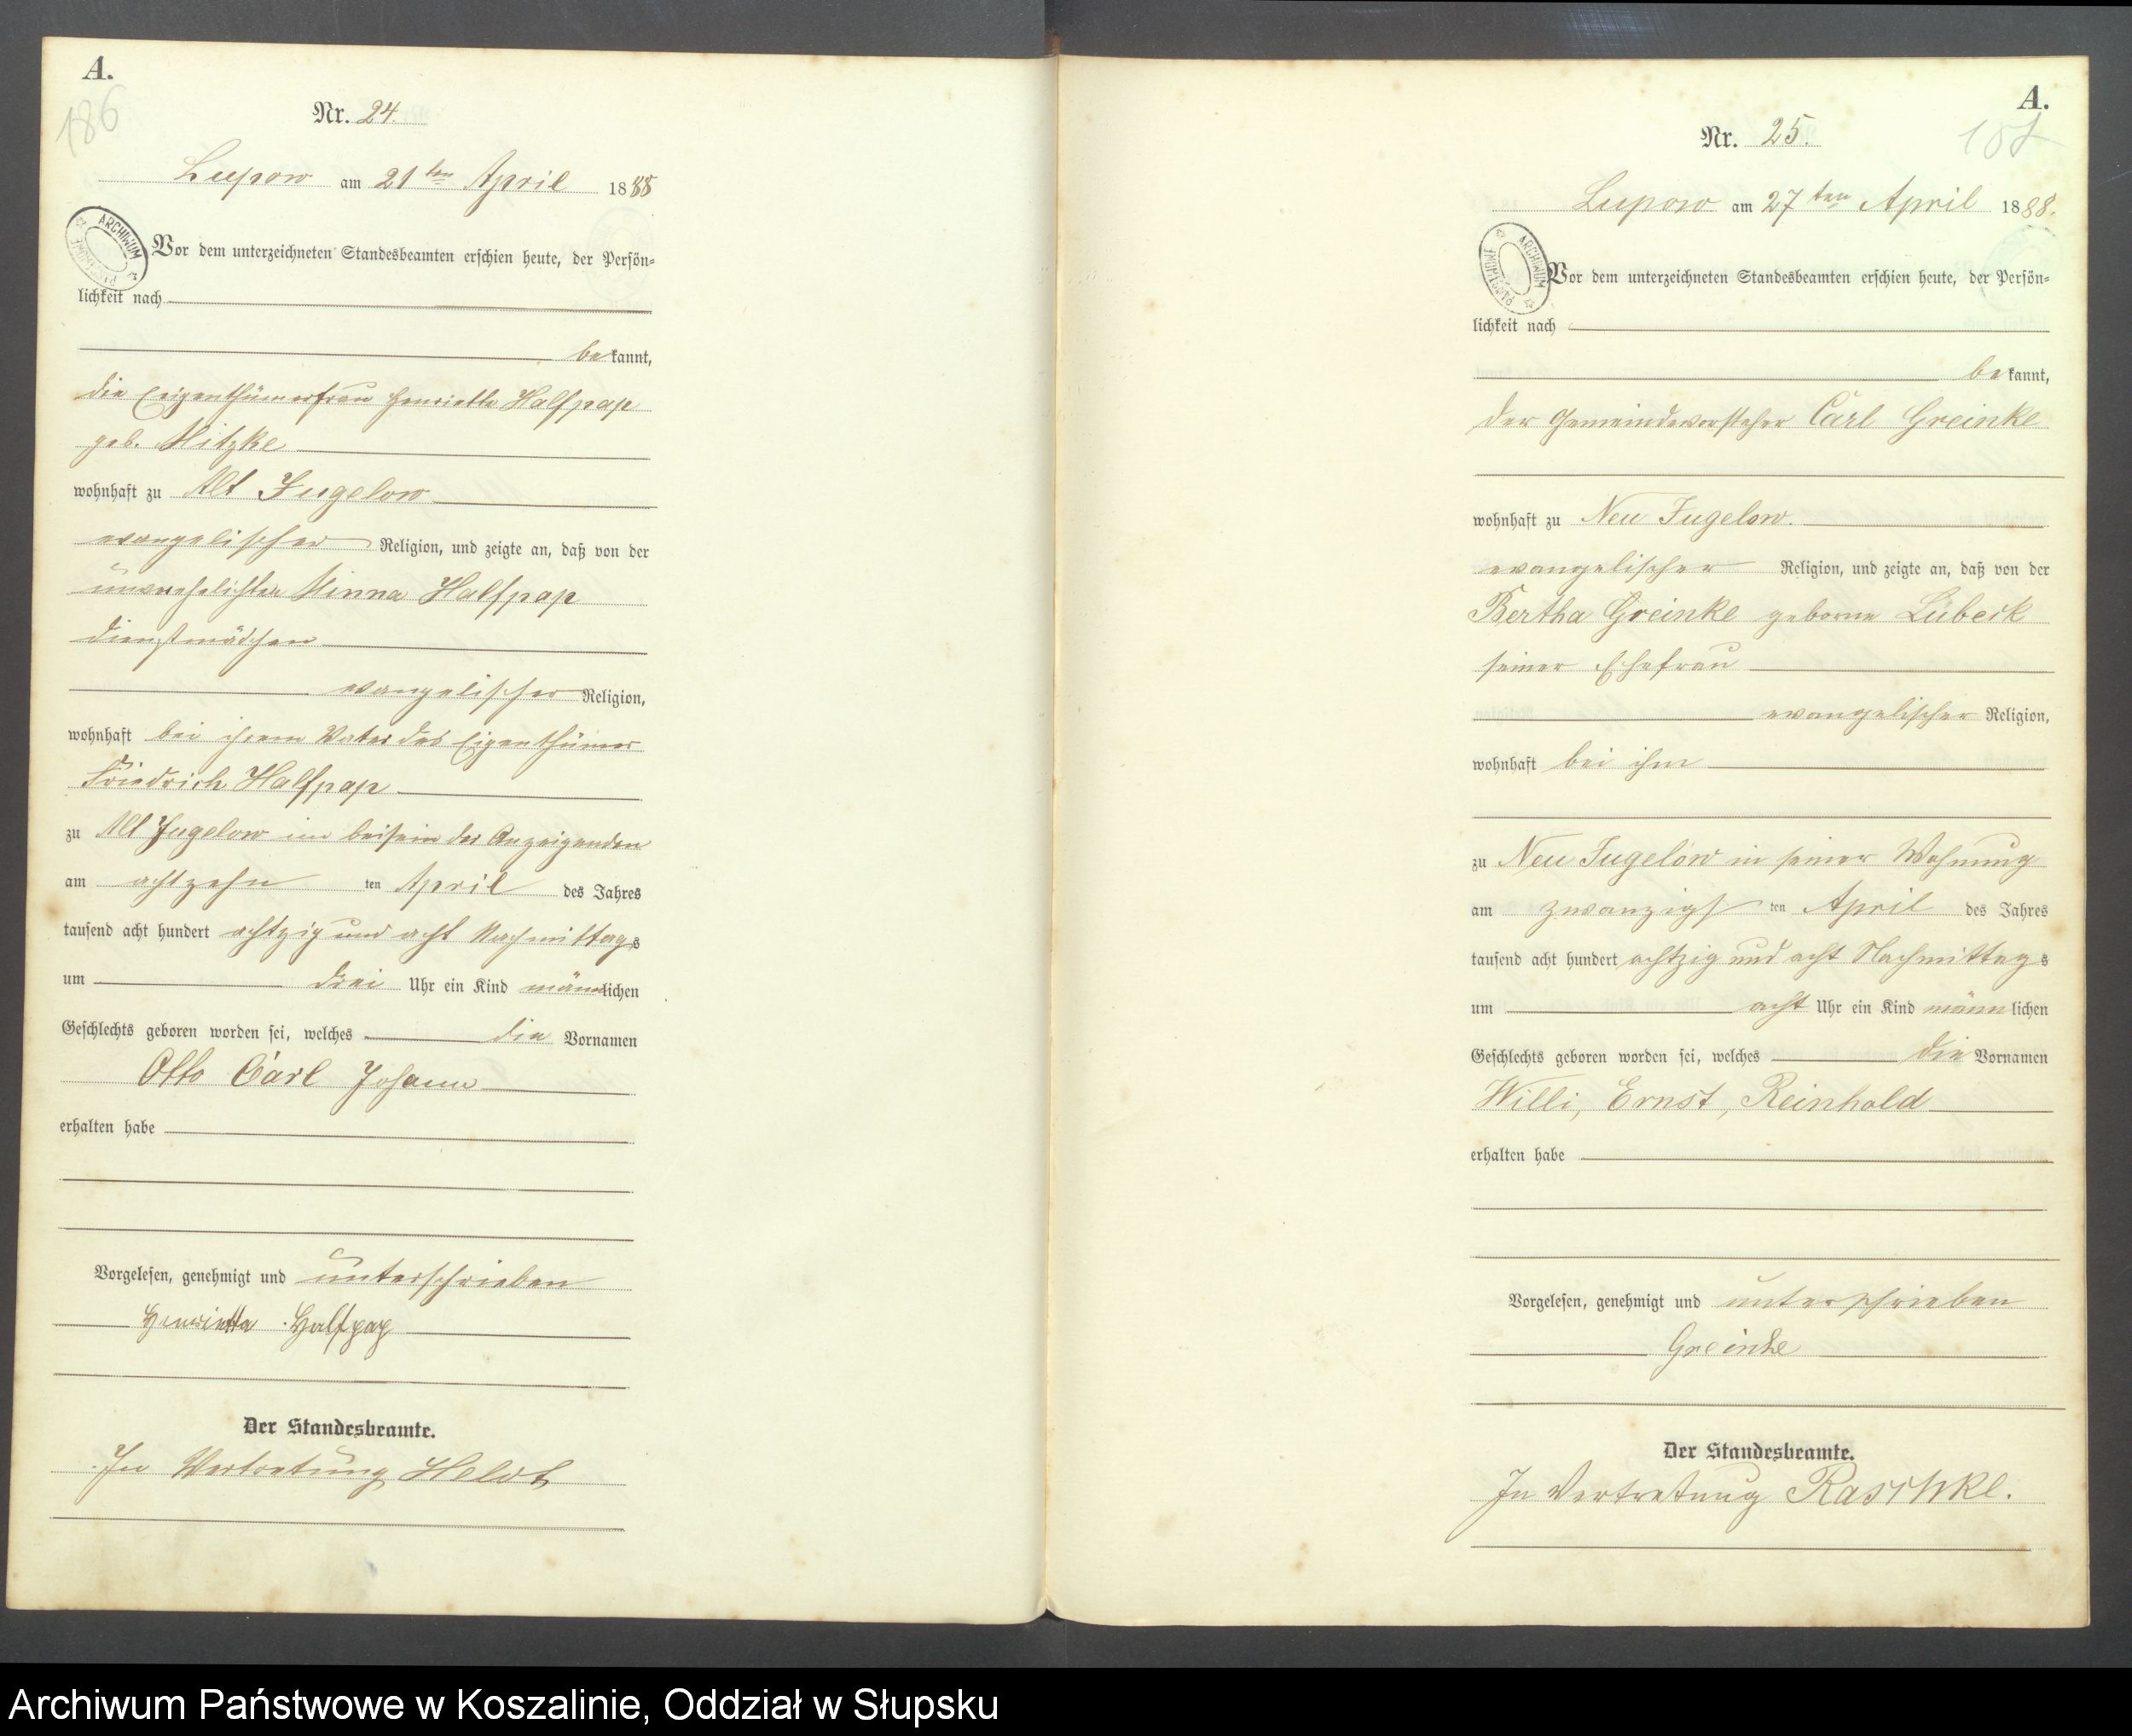 A.
186
Nr. 24.
Lupow am 21ten April 1888
ARCHIWUM PAŃSTWOWE
Vor dem unterzeichneten Standesbeamten erschien heute, der Persön-
lichkeit nach
bekannt,
die Eigenthümerfrau Henriette Halfpap
geb. Mitzke
wohnhaft zu Alt Jugelow
evangelischer Religion, und zeigte an, daß von der
unverehelichten Minna Halfpap
Dienstmädchen
evangelischer Religion,
wohnhaft bei ihrem Vater des Eigenthümer
Friedrich Halfpap
zu Alt Jugelow im beisein der Anzeigenden
am achtzehn ten April des Jahres
tausend acht hundert achtzig und acht Nachmittags
um drei Uhr ein Kind männlichen
Geschlechts geboren worden sei, welches die Vornamen
Otto Carl Johann
erhalten habe
Vorgelesen, genehmigt und unterschrieben
Henrietta Halfpap
Der Standesbeamte.
In Vertretung Heldt
A.
187
Nr. 25.
Lupow am 27ten April 1888.
ARCHIWUM PAŃSTWOWE
Vor dem unterzeichneten Standesbeamten erschien heute, der Persön-
lichkeit nach
bekannt,
der Gemeindevorsteher Carl Greinke
wohnhaft zu Neu Jugelow.
evangelischer Religion, und zeigte an, daß von der
Bertha Greinke geborne Lübeck
seiner Ehefrau
evangelischer Religion,
wohnhaft bei ihm
zu Neu Jugelow in seiner Wohnung
am zwanzigs ten April des Jahres
tausend acht hundert achtzig und acht Nachmittags
um acht Uhr ein Kind männlichen
Geschlechts geboren worden sei, welches die Vornamen
Willi, Ernst, Reinhold
erhalten habe
Vorgelesen, genehmigt und unterschrieben
Greinke
Der Standesbeamte.
In Vertretung Raschke.
Archiwum Państwowe w Koszalinie, Oddział w Słupsku